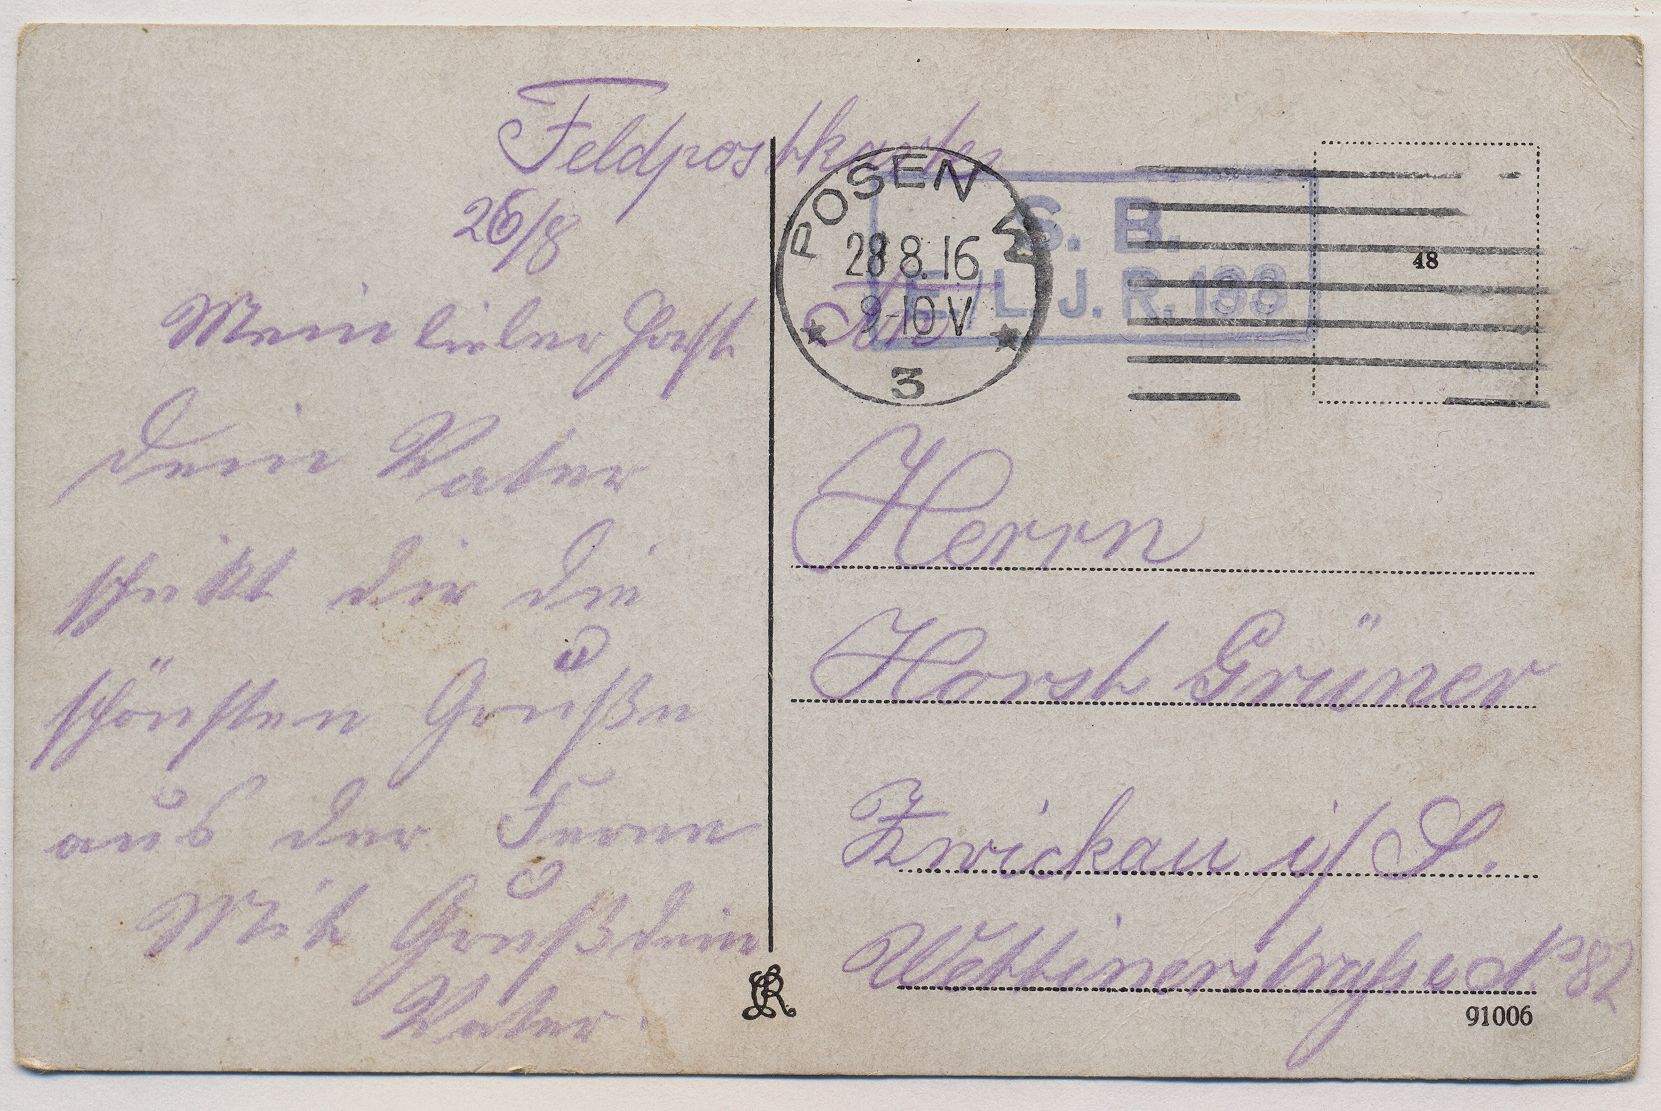 Feldpostkarte
26/8
Mein lieber Horst
Dein Vater
schikt dir die
schönsten Gruße
aus der Ferne
Mit Gruß dein
Vater.
POSEN W
28.8.16
9-10 V
3
S. B.
E/L. J. R. 133
An
48
Herrn
Horst Grüner
Zwickau i/S.
Wettinerstraße No 82
91006